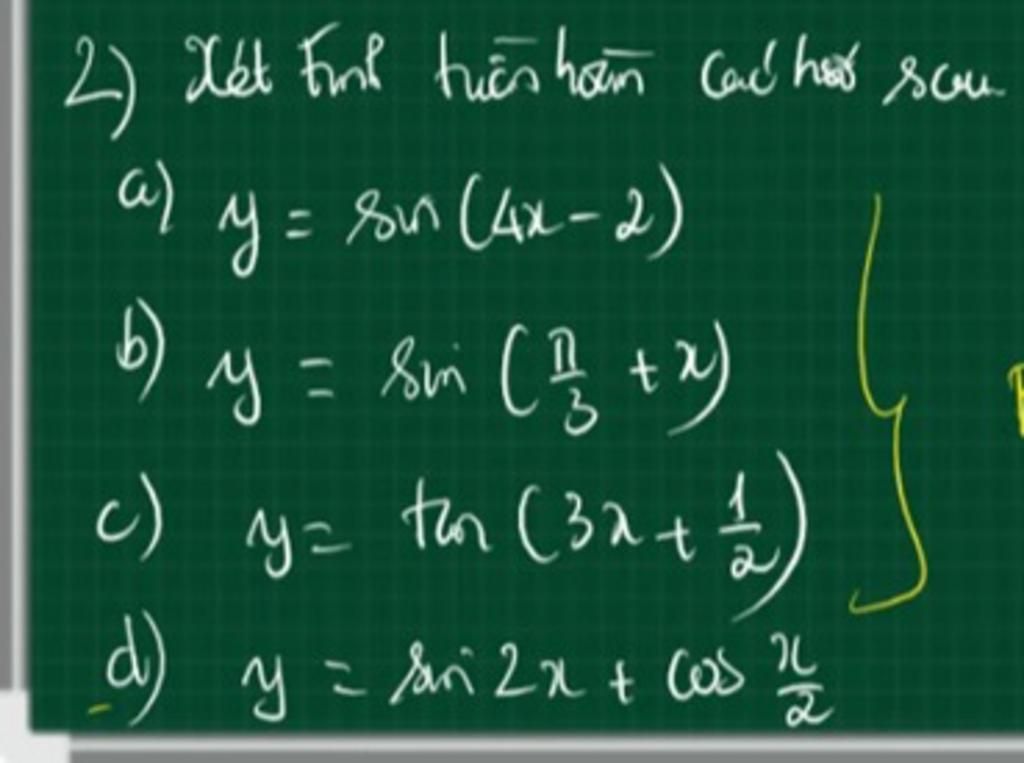 2) Xét tính tuần hoàn các hàm sau
a) y = sin (4x - 2)
b) y = sin (π/3 + x)
c) y = tan (3x + 1/2)
d) y = sin 2x + cos x/2